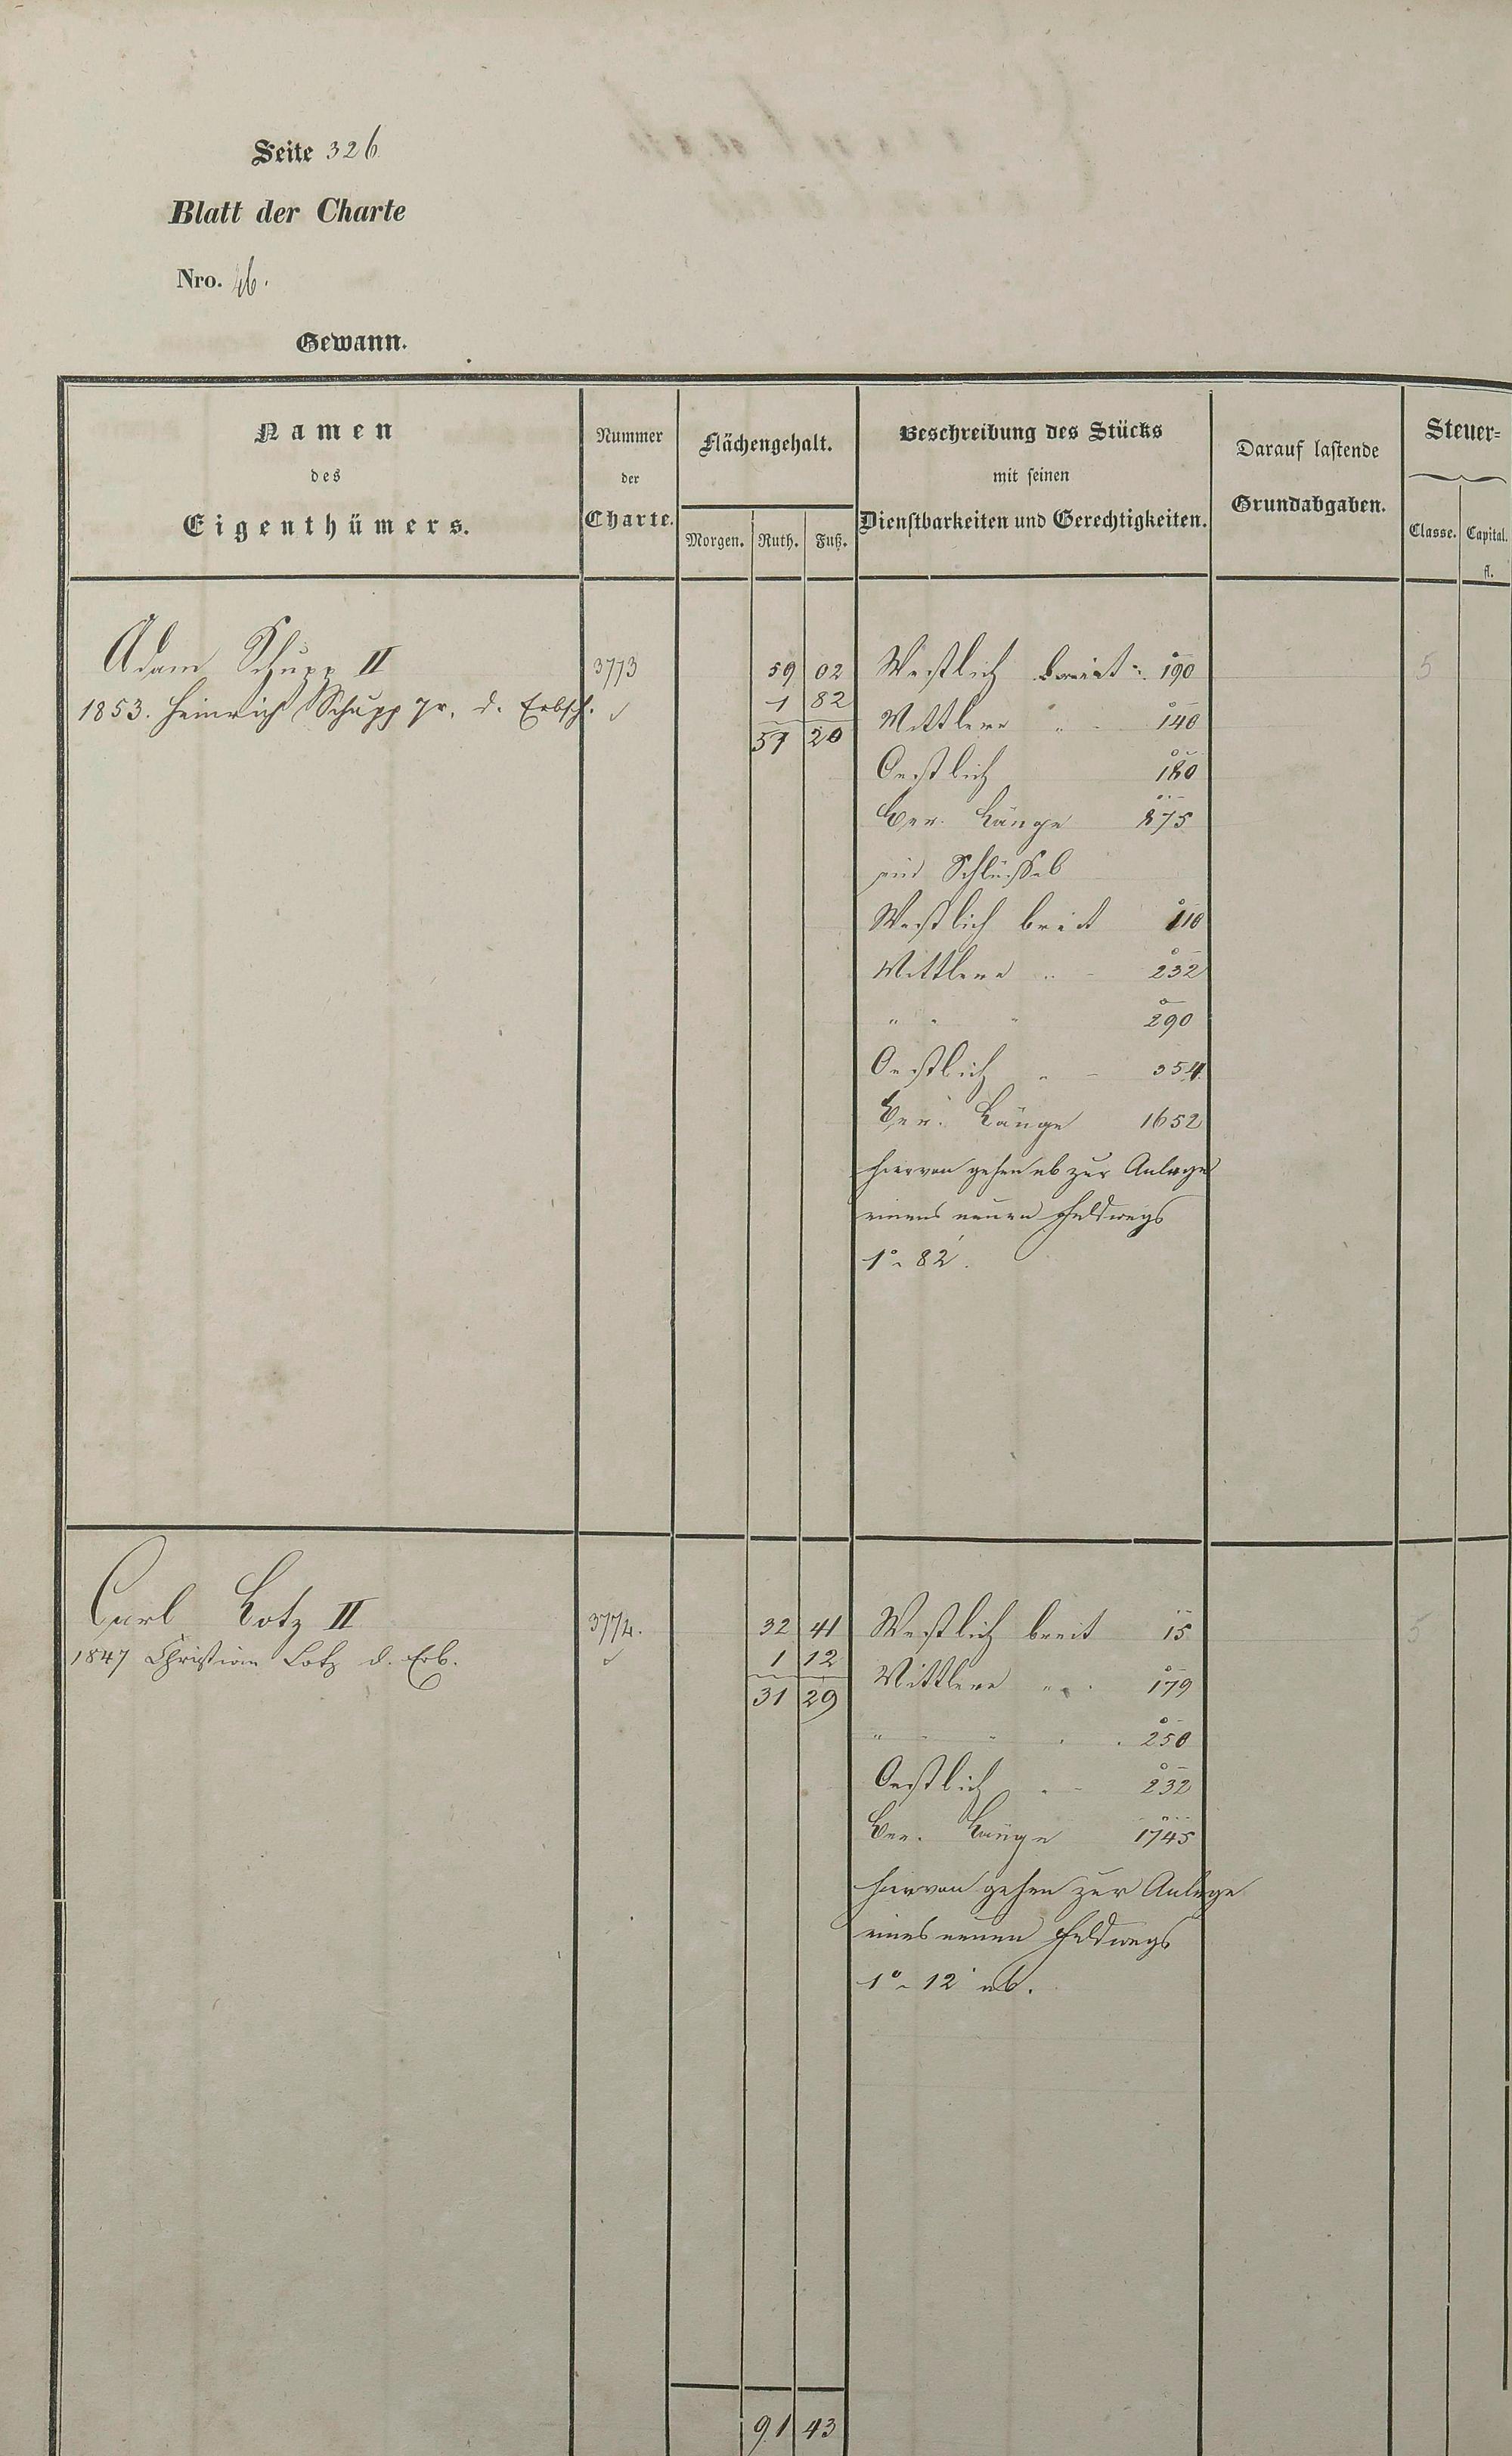 Seite 326
Blatt der Charte
Nro. 46.
Gewann.
Namen
des
Eigenthümers.
Nummer
der
Charte.
Flächengehalt.
Morgen. Ruth. Fuß.
Beschreibung des Stücks
mit seinen
Dienstbarkeiten und Gerechtigkeiten.
Darauf lastende
Grundabgaben.
Steuer=
Classe. Capital.
fl.
Adam Schupp II 3773 59 02 Westlich breit 190 5
1853. Heinrich Schupp gr. d. Erbsch. 1 82
57 20 Mittlere " 140
Oestlich 180
Ger. Länge 875
ein Schlüssel
Westlich breit 110
Mittlere " 232
" " " 290
Oestlich " 354
Ger. Länge 1652
hiervon gehen ab zur Anlage
einens neuen Feldwegs
1° 82'.
Carl Lotz II 3774. 32 41 Westlich breit 15 5
1847 Christian Lotz d. Erb. 1 12
31 29 Mittlere " 179
" " " 250
Oestlich " 232
Ger. Länge 1745
hiervon gehen zur Anlage
eines neuen Feldwegs
1° 12' ab.
91 43